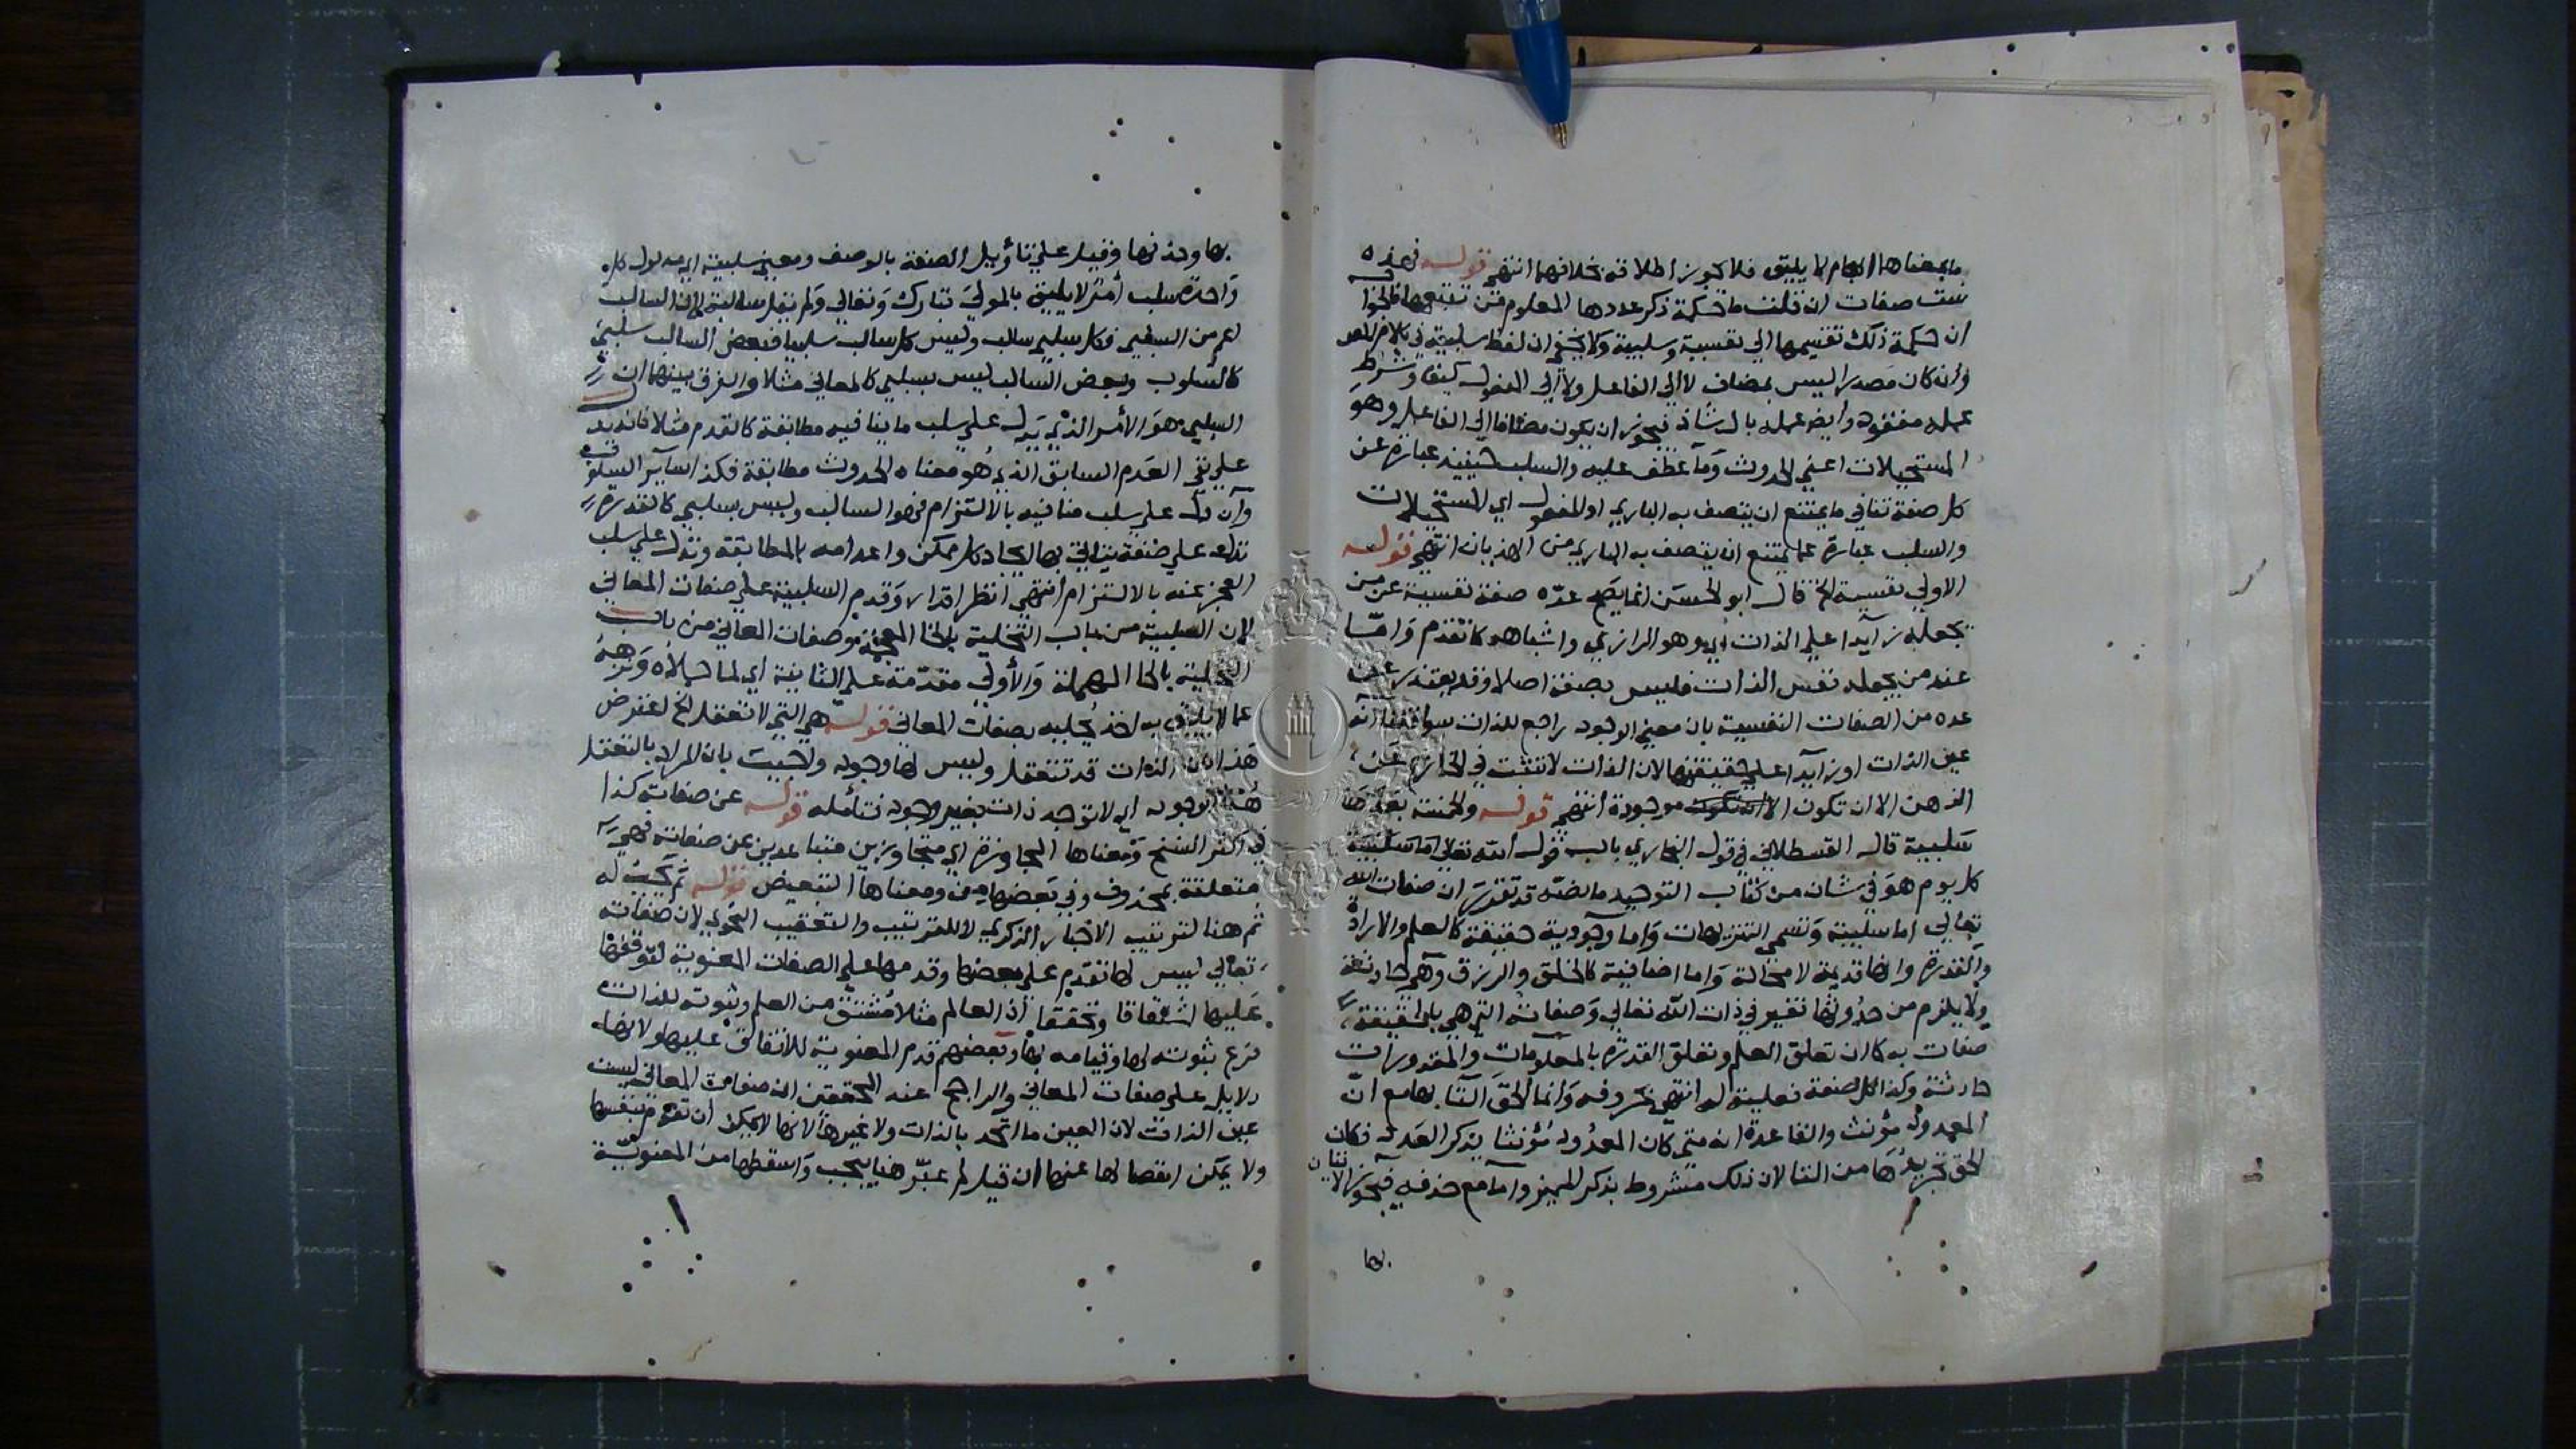 ما بمعناها ايهام لا يليق فلا يجوز اطلاقه بخلافهما انتهى قوله فهذه
ست صفات ان قلت ما حكمة ذكر عددها المعلوم من تتبعها فالجواب
ان حكمة ذلك تقسيمها الى نفسية وسلبية ولا يخفى ان لفظ سلبية في كلام المص
وان كان مصدرا ليس بمضاف لا الى الفاعل ولا الى المفعول كيف وشرط
عمله مفقود وايضا عمله بال شاذ فيجوز ان يكون مضافا الى الفاعل وهو
المستحيلات اعني الحدوث وما عطف عليه والسلب حينئذ عبارة عن
كل صفة تنافي ما يمتنع ان يتصف به الباري او للمفعول اي المستحيلات
والسلب عبارة عما يمتنع ان يتصف به الباري من الهذيان انتهى قوله
الاولى نفسية الخ قال ابو الحسن انما يصح عده صفة نفسية عن من
يجعله زايدا على الذات اي وهو الرازي واشباهه كما تقدم واما
عند من يجعله نفس الذات فليس بصفة اصلا وقد يعتذر عن
عده من الصفات النفسية بان معنى الوجود راجع للذات سواء قلنا انه
عين الذات او زايدا على حقيقتها لان الذات لا تثبت في الخارج عن
الذهن الا ان تكون موجودة انتهى قوله والخمسة بعدها
سلبية قال القسطلاني في قول البخاري باب قول الله تعالى
كل يوم هو في شان من كتاب التوحيد ما نصه قد تقرر ان صفات الله
تعالى اما سلبية وتسمى التنزيهات واما وجودية حقيقة كالعلم والارادة
والقدرة وانها قديمة لا محالة واما اضافية كالخلق والرزق وهي حادثة
ولا يلزم من حدوثها تغير في ذات الله تعالى وصفاته التي هي بالحقيقة
صفات به كما ان تعلق العلم وتعلق القدرة بالمعلومات والمقدورات
حادثة وكذا كل صفة فعلية له انتهى بحروفه وانما الحق التا بها مع ان
المعدود مؤنث والقاعدة انه متى كان المعدود مؤنثا يذكر العدد فكان
الحق تجريدها من التا لان ذلك مشروط بذكر المميز واما مع حذفه فيجوز الاتيان
بها
بها وحذفها وقيل على تأويل الصفة بالوصف ومعنى سلبية اي مدلول كل
واحدة سلب أمر لا يليق بالمولى تبارك وتعالى ولم نقل سالبة لان السالب
اعم من السلبي فكل سلبي سالب وليس كل سالب سلبيا فبعض السالب سلبي
كالسلوب وبعض السالب ليس بسلبي كالمعاني مثلا والفرق بينهما ان
السلبي هو الأمر الذي يدل على سلب ما ينافيه مطابقة كالقدم مثلا فانه يدل
على نفي العدم السابق الذي هو معناه الحدوث مطابقة فكذا سآير السلوب
وان دل على سلب منافيه بالالتزام فهو السالب وليس بسلبي كالقدرة
تدل على صفة يتاتى بها ايجاد كل ممكن واعدامه بالمطابقة وتدل على سلب
العجز عنه بالالتزام انتهى انظر اقدار وقدم السلبية على صفات المعاني
لان السلبية من باب التخلية بالخا المعجمة وصفات المعاني من باب
التحلية بالحا المهملة والأولى مقدمة على الثانية اي لما خلاه ونزهه
عما لا يليق به اخذ يحليه بصفات المعاني قوله هي التي لا تعقل الخ اعترض
هذا بان الذات قد تتعقل وليس لها وجود واجيب بان المراد بالتعقل
هنا الوجود اي لا توجد ذات بغير وجود فتأمله قوله عن صفاته كذا
في اكثر النسخ ومعناها المجاوزة اي متجاوزين متباعدين عن صفاته فهي
متعلقة بمحذوف وفي بعضها من ومعناها التبعيض قوله ثم يجب له
ثم هنا لترتيب الاخبار الذكري لا للترتيب والتعقيب النحوي لان صفاته
تعالى ليس لها تقدم على بعضها وقدمها على الصفات المعنوية لتوقفها
عليها اشتقاقا وتحققا اذ العالم مثلا مشتق من العلم وثبوته للذات
فرع ثبوته لها وقيامه بها وبعضهم قدم المعنوية للاتفاق عليها ولانها
دلايل على صفات المعاني والراجح عند المحققين ان صفات المعاني ليست
عين الذات لان العين ما اتحد بالذات ولا غيرها لانها لا يمكن ان تقوم بنفسها
ولا يمكن انفصالها عنها ان قيل لم عبر هنا بيجب واسقطها من المعنوية